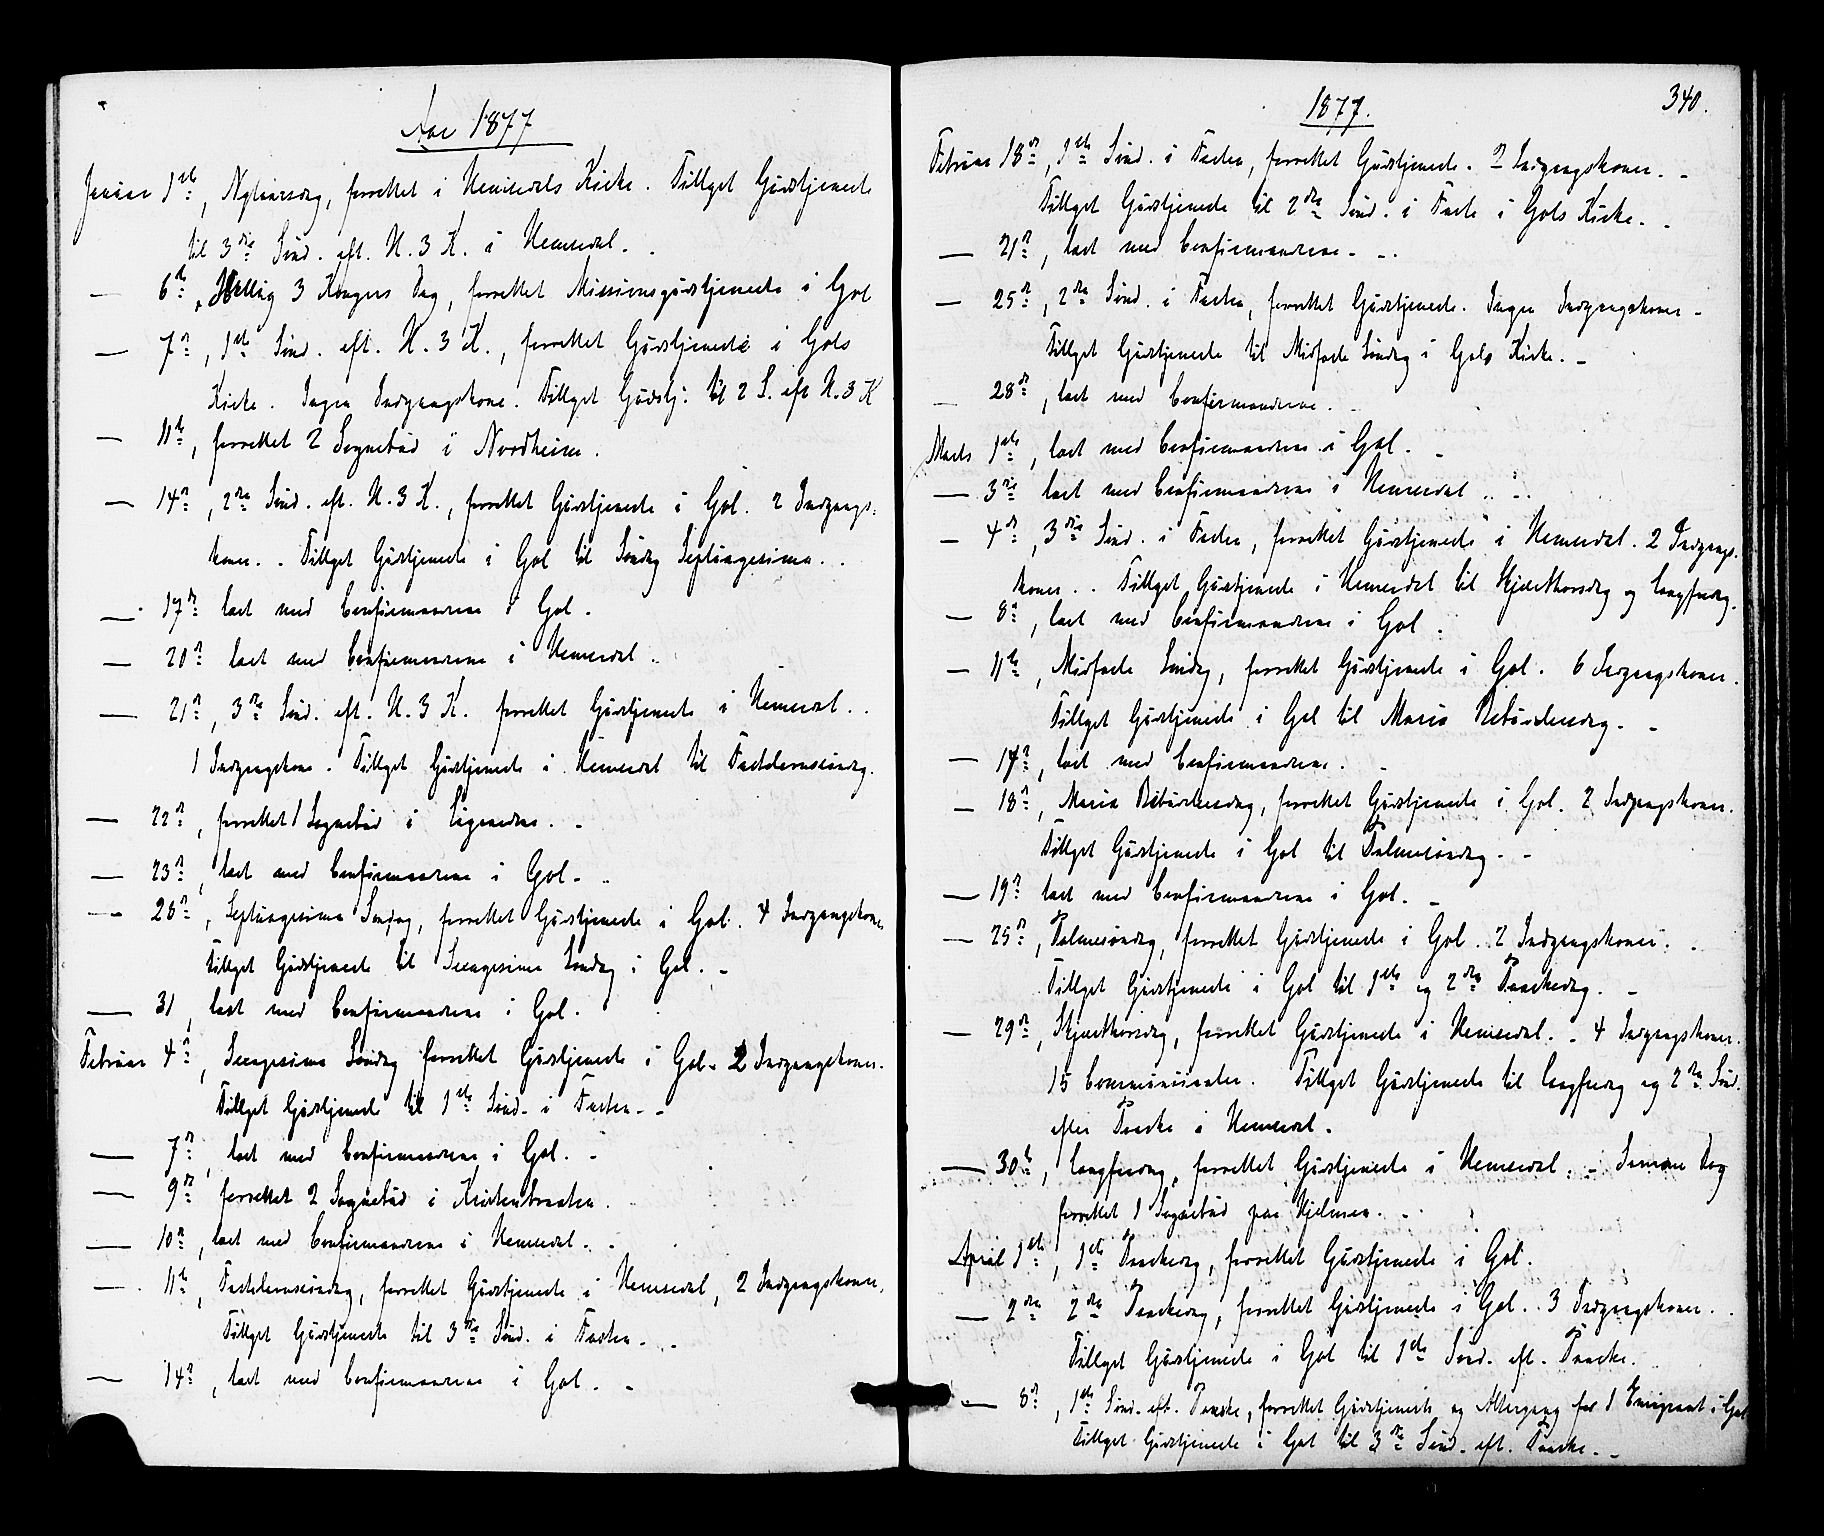 Aar 1877
Januar 1ste, Nytaarsdag, forrettet i Hemsedals Kirke. Tillyst Gudstjeneste
til 3die Sønd. eft. H. 3 K. i Hemsedal.
— 6te, Hellig 3 Kongers Dag, forrettet Missionsgudstjeneste i Gol
— 7de, 1ste Sønd. eft. H. 3 K., forrettet Gudstjeneste i Gols
Kirke. Ingen Indgangskone. Tillyst Gudstj. til 2 S. eft H. 3 K
— 11te, forrettet 2 Sognebud i Nordheim.
— 14de, 2den Sønd. eft. H. 3 K., forrettet Gudstjeneste i Gol. 2 Indgangs-
koner. Tillyst Gudstjeneste i Gol til Søndag Septuagesima.
— 17de læst med Confirmanderne i Gol.
— 20de læst med Confirmanderne i Hemsedal.
— 21de, 3die Sønd. eft. H. 3 K. forrettet Gudstjeneste i Hemsedal.
1 Indgangskone. Tillyst Gudstjeneste i Hemsedal til Fastelavnssøndag.
— 22de, forrettet 1 Sognebud i
— 23de, læst med Confirmanderne i Gol.
— 28de, Septuagesima Søndag, forrettet Gudstjeneste i Gol. 4 Indgangskoner
Tillyst Gudstjeneste til Sexagesima Søndag i Gol.
— 31, læst med Confirmanderne i Gol.
Februar 4de, Sexagesima Søndag forrettet Gudstjeneste i Gol. 2 Indgangskoner.
Tillyst Gudstjeneste til 1ste Sønd. i Fasten.
— 7de, læst med Confirmanderne i Gol.
— 9de forrettet 2 Sognebud i
— 10de, læst med Confirmanderne i Hemsedal.
— 11te, Fastelavnssøndag, forrettet Gudstjeneste i Hemsedal, 2 Indgangskoner.
Tillyst Gudstjeneste til 3die Sønd. i Fasten.
— 14de, læst med Confirmanderne i Gol.
1877. 340.
Februar 18de, 1ste Sønd. i Fasten, forrettet Gudstjeneste. 2 Indgangskoner.
Tillyst Gudstjeneste til 2den Sønd. i Faste i Gols Kirke.
— 21de, læst med Confirmanderne.
— 25de, 2den Sønd. i Fasten, forrettet Gudstjeneste. Ingen Indgangskoner
Tillyst Gudstjeneste til Midfaste Søndag i Gols Kirke.
— 28de, læst med Confirmanderne.
Marts 1ste, læst med Confirmanderne i Gol.
— 3die læst med Confirmanderne i Hemsedal.
— 4de, 3die Sønd. i Fasten, forrettet Gudstjeneste i Hemsedal. 2 Indgangs-
koner. Tillyst Gudstjeneste i Hemsedal til Skjærthorsdag og Langfredag.
— 8de, læst med Confirmanderne i Gol.
— 11te, Midfaste Søndag, forrettet Gudstjeneste i Gol. 6 Indgangskoner.
Tillyst Gudstjeneste i Gol til Mariæ Bebudelsesdag.
— 14de, læst med Confirmanderne.
— 18de, Mariæ Bebudelsesdag, forrettet Gudstjeneste i Gol. 2 Indgangskoner.
Tillyst Gudstjeneste i Gol til Palmesøndag.
— 19de læst med Confirmanderne i Gol.
— 25de, Palmesøndag, forrettet Gudstjeneste i Gol. 2 Indgangskoner.
Tillyst Gudstjeneste i Gol til 1ste og 2den Paaskedag.
— 29de, Skjærthorsdag, forrettet Gudstjeneste i Hemsedal. 4 Indgangskoner.
15 Communicanter. Tillyst Gudstjeneste til Langfredag og 2den Sønd.
efter Paaske i Hemsedal.
— 30te, Langfredag, forrettet Gudstjeneste i Hemsedal. Samme Dag
forrettet 1 Sognebud paa Hjelmen.
April 1ste, 1ste Paaskedag, forrettet Gudstjeneste i Gol.
— 2den 2den Paaskedag, forrettet Gudstjeneste i Gol. 3 Indgangskoner.
Tillyst Gudstjeneste i Gol til 1ste Sønd. eft. Paaske.
— 8de, 1ste Sønd. eft. Paaske, forrettet Gudstjeneste og Altergang for 1 Emigrant i Gol
Tillyst Gudstjeneste i Gol til 3die Sønd. eft. Paaske.